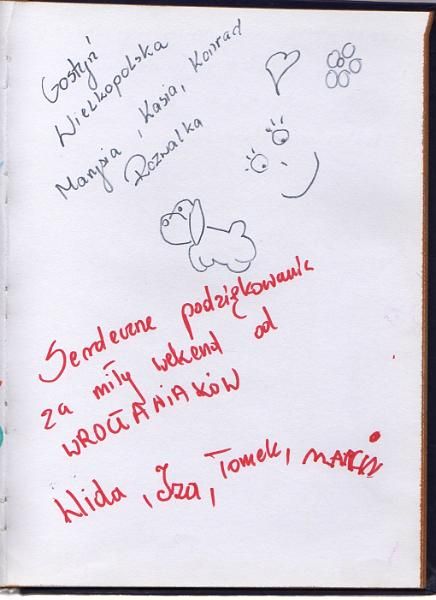 Gostyń
Wielkopolska
Marysia, Kasia, Konrad
Rozwalka
Serdeczne podziękowania
za miły wekend od
WROCŁANIAKÓW
Wida, Iza, Tomek, MARCIN